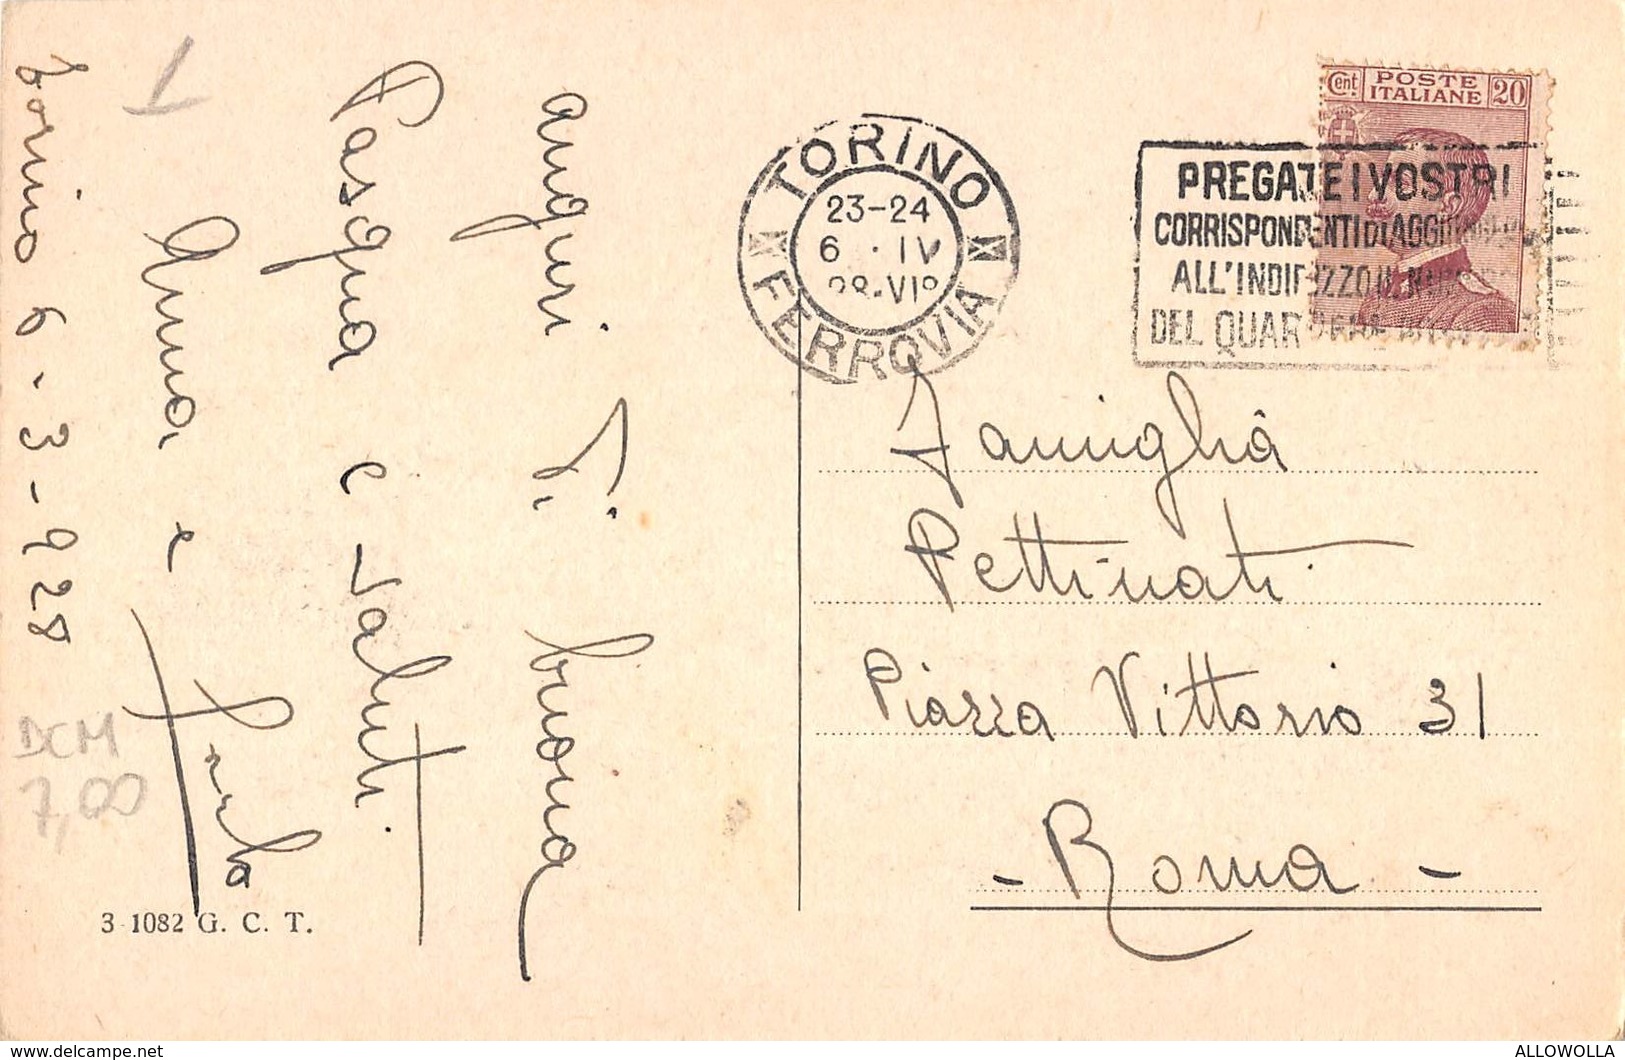 auguri di buona
Pasqua e saluti
Anna e
Torino 6-3-928
1
DCM
7,00
3-1082 G. C. T.
TORINO
23-24
6 . IV
28-VIº
FERROVIA
Cent. POSTE ITALIANE 20
PREGATE I VOSTRI
CORRISPONDENTI DI AGGIUNGERE
ALL'INDIRIZZO IL NUMERO
DEL QUARTIERE POSTALE
Famiglia
Pettinati
Piazza Vittorio 31
- Roma -
delcampe.net
ALLOWOLLA